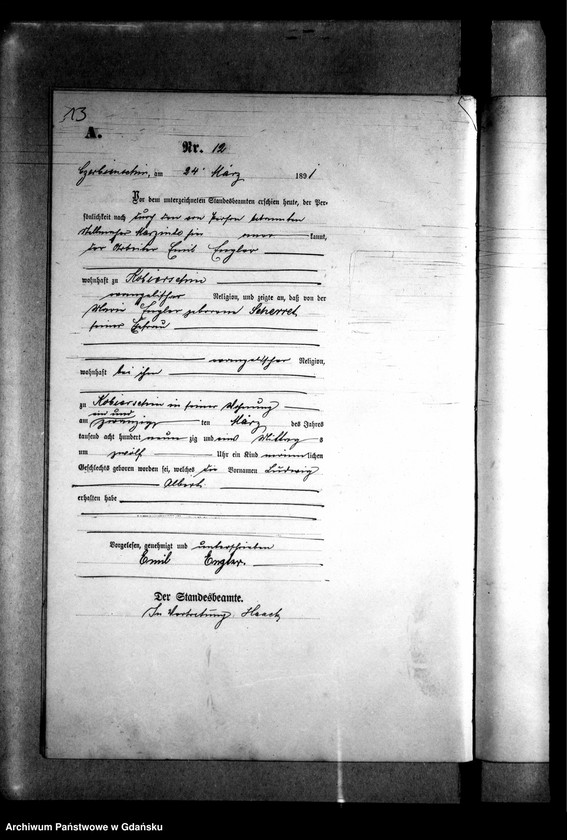 13
A.
Nr. 12
am 24 März 1891
Vor dem unterzeichneten Standesbeamten erschien heute, der Per-
sönlichkeit nach durch den von Person bekannten
kannt,
der Arbeiter Emil Engler
wohnhaft zu Kobierschin
evangelischer Religion, und zeigte an, daß von der
Marie Engler geborene Scherret
seiner Ehefrau
evangelischer Religion,
wohnhaft bei ihm
zu Kobierschin in seiner Wohnung
ein und
am zwanzigs ten März des Jahres
tausend acht hundert neun zig und eins Mittag s
um zwölf Uhr ein Kind männlichen
Geschlechts geboren worden sei, welches die Vornamen Ludwig
Albert
erhalten habe
Vorgelesen, genehmigt und unterschrieben
Emil Engler.
Der Standesbeamte.
In Vertretung Haack
Archiwum Państwowe w Gdańsku